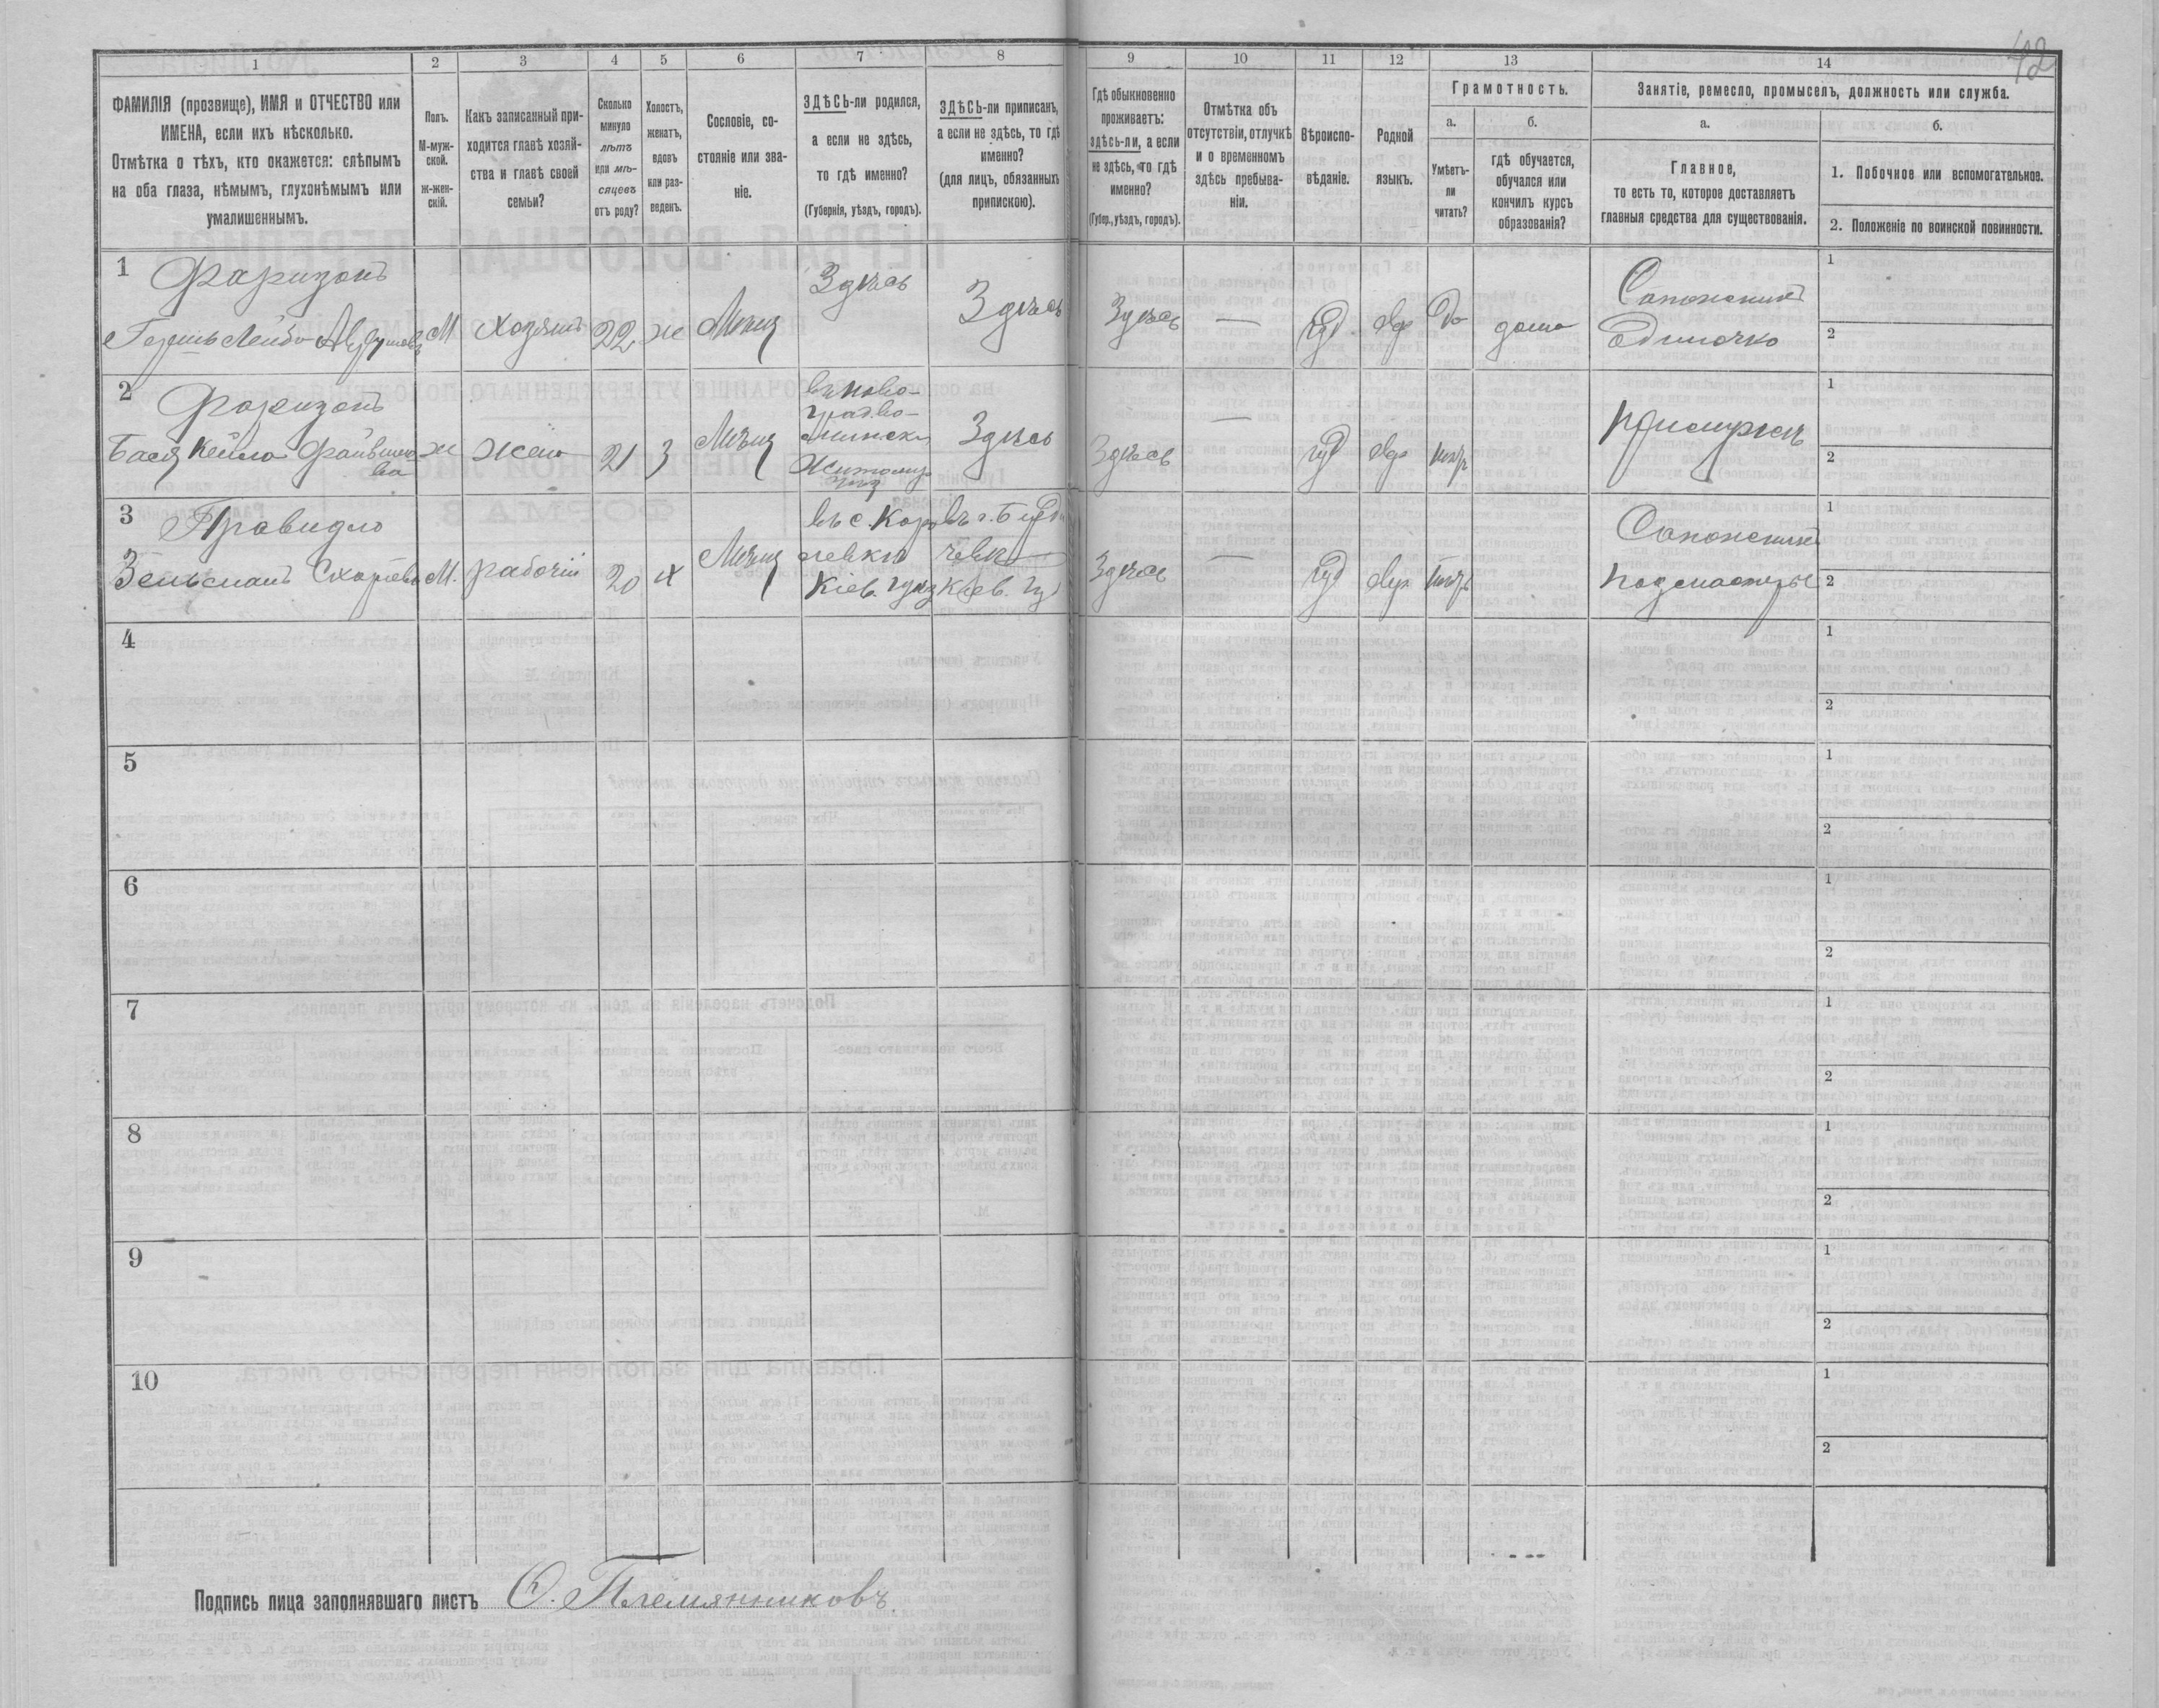 42
1 2 3 4 5 6 7 8 9 10 11 12 13 14
ФАМИЛІЯ (прозвище), ИМЯ и ОТЧЕСТВО или
ИМЕНА, если ихъ нѣсколько.
Отмѣтка о тѣхъ, кто окажется: слѣпымъ
на оба глаза, нѣмымъ, глухонѣмымъ или
умалишеннымъ.
Полъ.
М-муж-
ской.
Ж-жен-
скій.
Какъ записанный при-
ходится главѣ хозяй-
ства и главѣ своей
семьи?
Сколько
минуло
лѣтъ
или мѣ-
сяцевъ
отъ роду?
Холостъ,
женатъ,
вдовъ
или раз-
веденъ.
Сословіе, со-
стояніе или зва-
ніе.
ЗДѢСЬ-ли родился,
а если не здѣсь,
то гдѣ именно?
(Губернія, уѣздъ, городъ).
ЗДѢСЬ-ли приписанъ,
а если не здѣсь, то гдѣ
именно?
(для лицъ, обязанныхъ
припискою).
Гдѣ обыкновенно
проживаетъ:
здѣсь-ли, а если
не здѣсь, то гдѣ
именно?
(Губер., уѣздъ, городъ).
Отмѣтка объ
отсутствіи, отлучкѣ
и о временномъ
здѣсь пребыва-
ніи.
Вѣроиспо-
вѣданіе.
Родной
языкъ.
Грамотность.
а.
Умѣетъ-
ли
читать?
б.
гдѣ обучается,
обучался или
кончилъ курсъ
образованія?
Занятіе, ремесло, промыселъ, должность или служба.
а.
Главное,
то есть то, которое доставляетъ
главныя средства для существованія.
б.
1. Побочное или вспомогательное.
2. Положеніе по воинской повинности.
1 Фаризонъ Здѣсь Сапожникъ 1
Лейбо М. Хозяинъ 22 ж Мѣщ Здѣсь Здѣсь — Іуд Евр Да дома Одиночка 2
2 Фаризонъ въ Ново-
град Во-
лынскѣ
1
Бася Кейла Файвишо
ва ж жена 21 З Мѣщ Здѣсь Здѣсь — Іуд Евр При мужѣ 2
3 Правидло въ с. 1
Зельманъ М. рабочій 20 х Мѣщ Кіев. Кіев. Здѣсь — Іуд Евр Сапожникъ
подмастерье 2
4 1
2
5 1
2
6 1
2
7 1
2
8 1
2
9 1
2
10 1
2
Подпись лица заполнявшаго листъ О. Племянниковъ